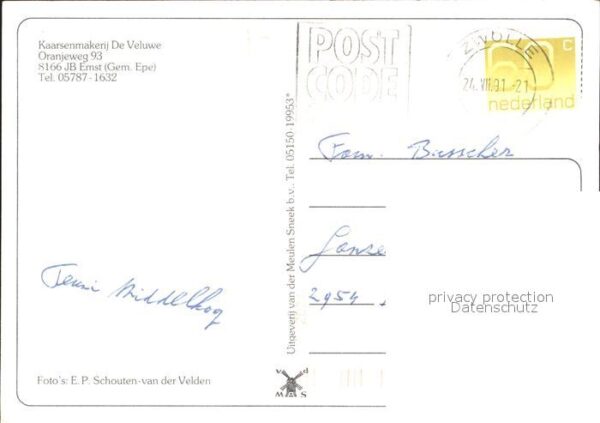 Kaarsenmakerij De Veluwe
Oranjeweg 93
8166 JB Emst (Gem. Epe)
Tel. 05787-1632
POST
CODE
ZWOLLE
24.VII.91.-21
60 C
nederland
Fam. Busscher
2954
privacy protection
Datenschutz
Uitgeverij van der Meulen Sneek b.v., Tel. 05150-19953*
Foto's: E.P. Schouten-van der Velden
v d
W M S